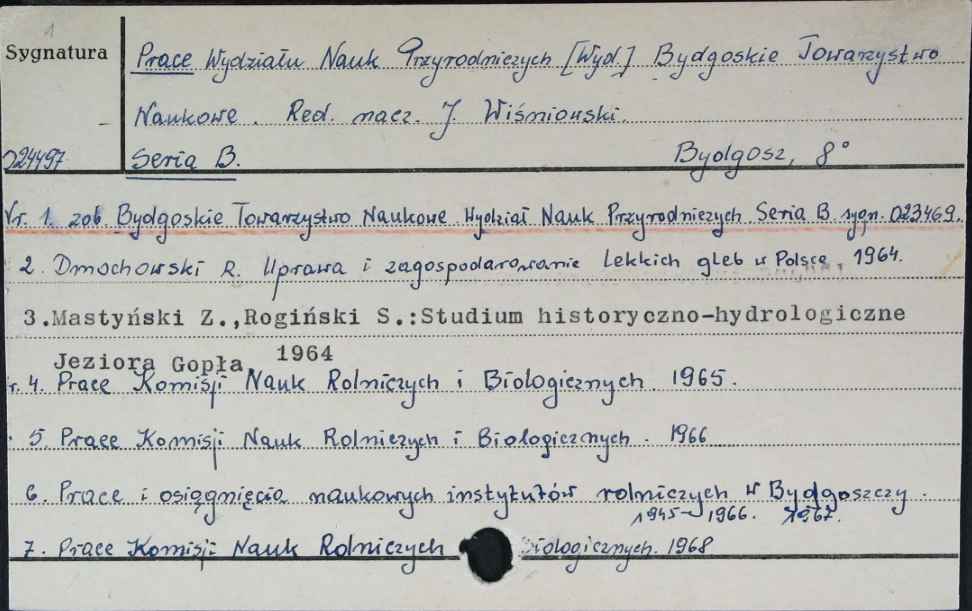 1
Sygnatura
Prace Wydziału Nauk Przyrodniczych [Wyd.] Bydgoskie Towarzystwo
Naukowe. Red. nacz. J. Wiśniowski.
D24497
Seria B. Bydgosz, 8°
Nr. 1. zob. Bydgoskie Towarzystwo Naukowe Wydział Nauk Przyrodniczych Seria B sygn. D23469.
2. Dmochowski R. Uprawa i zagospodarowanie lekkich gleb w Polsce, 1964.
3.Mastyński Z.,Rogiński S.:Studium historyczno-hydrologiczne
Jeziora Gopła, 1964
r. 4. Prace Komisji Nauk Rolniczych i Biologicznych 1965.
5. Prace Komisji Nauk Rolniczych i Biologicznych. 1966
6. Prace i osięgnięcia naukowych instytutów rolniczych w Bydgoszczy.
1945-1966. 1967.
7. Prace Komisji Nauk Rolniczych Biologicznych. 1968